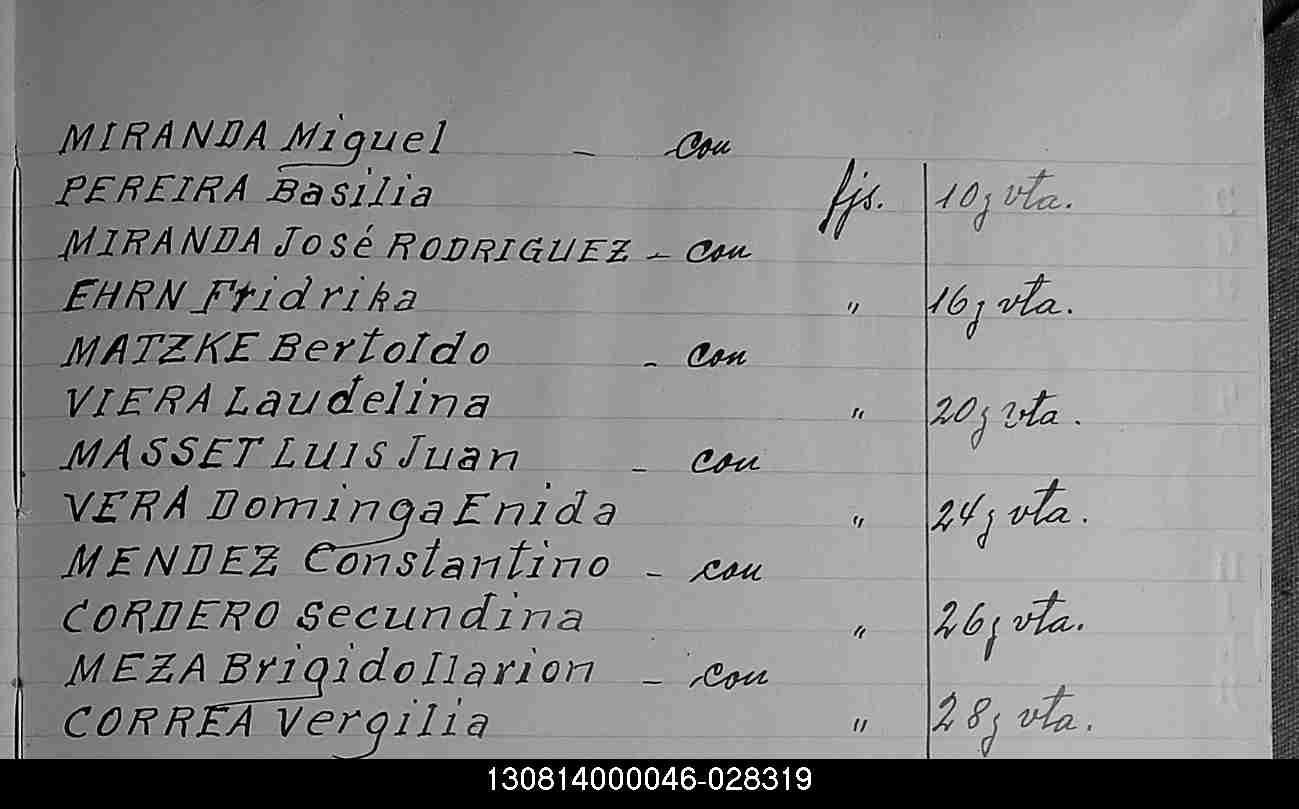 MIRANDA Miguel - con
PEREIRA Basilia fjs. 10 y vta.
MIRANDA José RODRIGUEZ - con
EHRN Fridrika " 16 y vta.
MATZKE Bertoldo - con
VIERA Laudelina " 20 y vta.
MASSET LUIS Juan - con
VERA Dominga Enida " 24 y vta.
MENDEZ Constantino - con
CORDERO Secundina " 26 y vta.
MEZA Brigido Ilarion - con
CORREA Vergilia " 28 y vta.
130814000046-028319